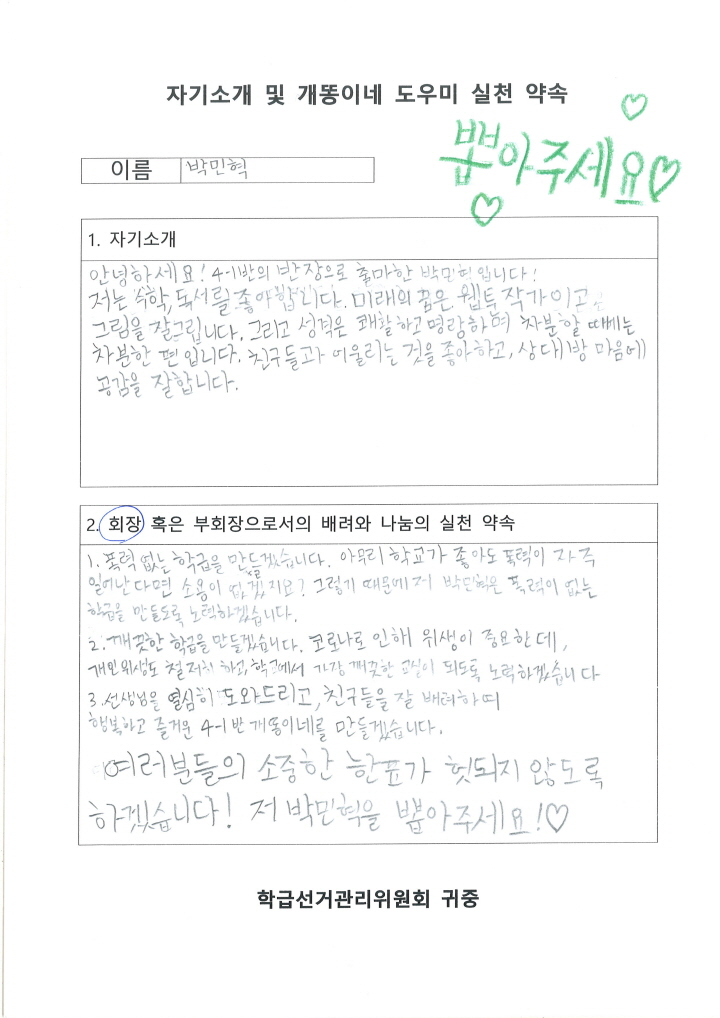 자기소개 및 개똥이네 도우미 실천 약속
뽑아주세요♡
이름 박민혁
1. 자기소개
안녕하세요! 4-1반의 반장으로 출마한 박민혁입니다!
저는 수학, 독서를 좋아합니다. 미래의 꿈은 웹투작가이고
그림을 잘그립니다. 그리고 성격은 쾌할하고 명랑하며 차분할 때에는
차분한 편입니다. 친구들과 어울리는 것을 좋아하고, 상대방 마음에
공감을 잘합니다.
2. 회장 혹은 부회장으로서의 배려와 나눔의 실천 약속
1. 폭력 없는 학급을 만들겠습니다. 아무리 학교가 좋아도 폭력이 자주
일어난다면 소용이 없겠지요? 그렇기 때문에 저 박민혁은 폭력이 없는
학급을 만들도록 노력하겠습니다.
2. 깨끗한 학급을 만들겠습니다. 코로나로 인해 위생이 중요한데,
개인위생도 철저히 하고, 학교에서 가장 깨끗한 교실이 되도록 노력하겠습니다
3. 선생님을 열심히 도와드리고, 친구들을 잘 배려하며
행복하고 즐거운 4-1반 개똥이네를 만들겠습니다.
여러분들의 소중한 한표가 헛되지 않도록
하겠습니다! 저 박민혁을 뽑아주세요!♡
학급선거관리위원회 귀중